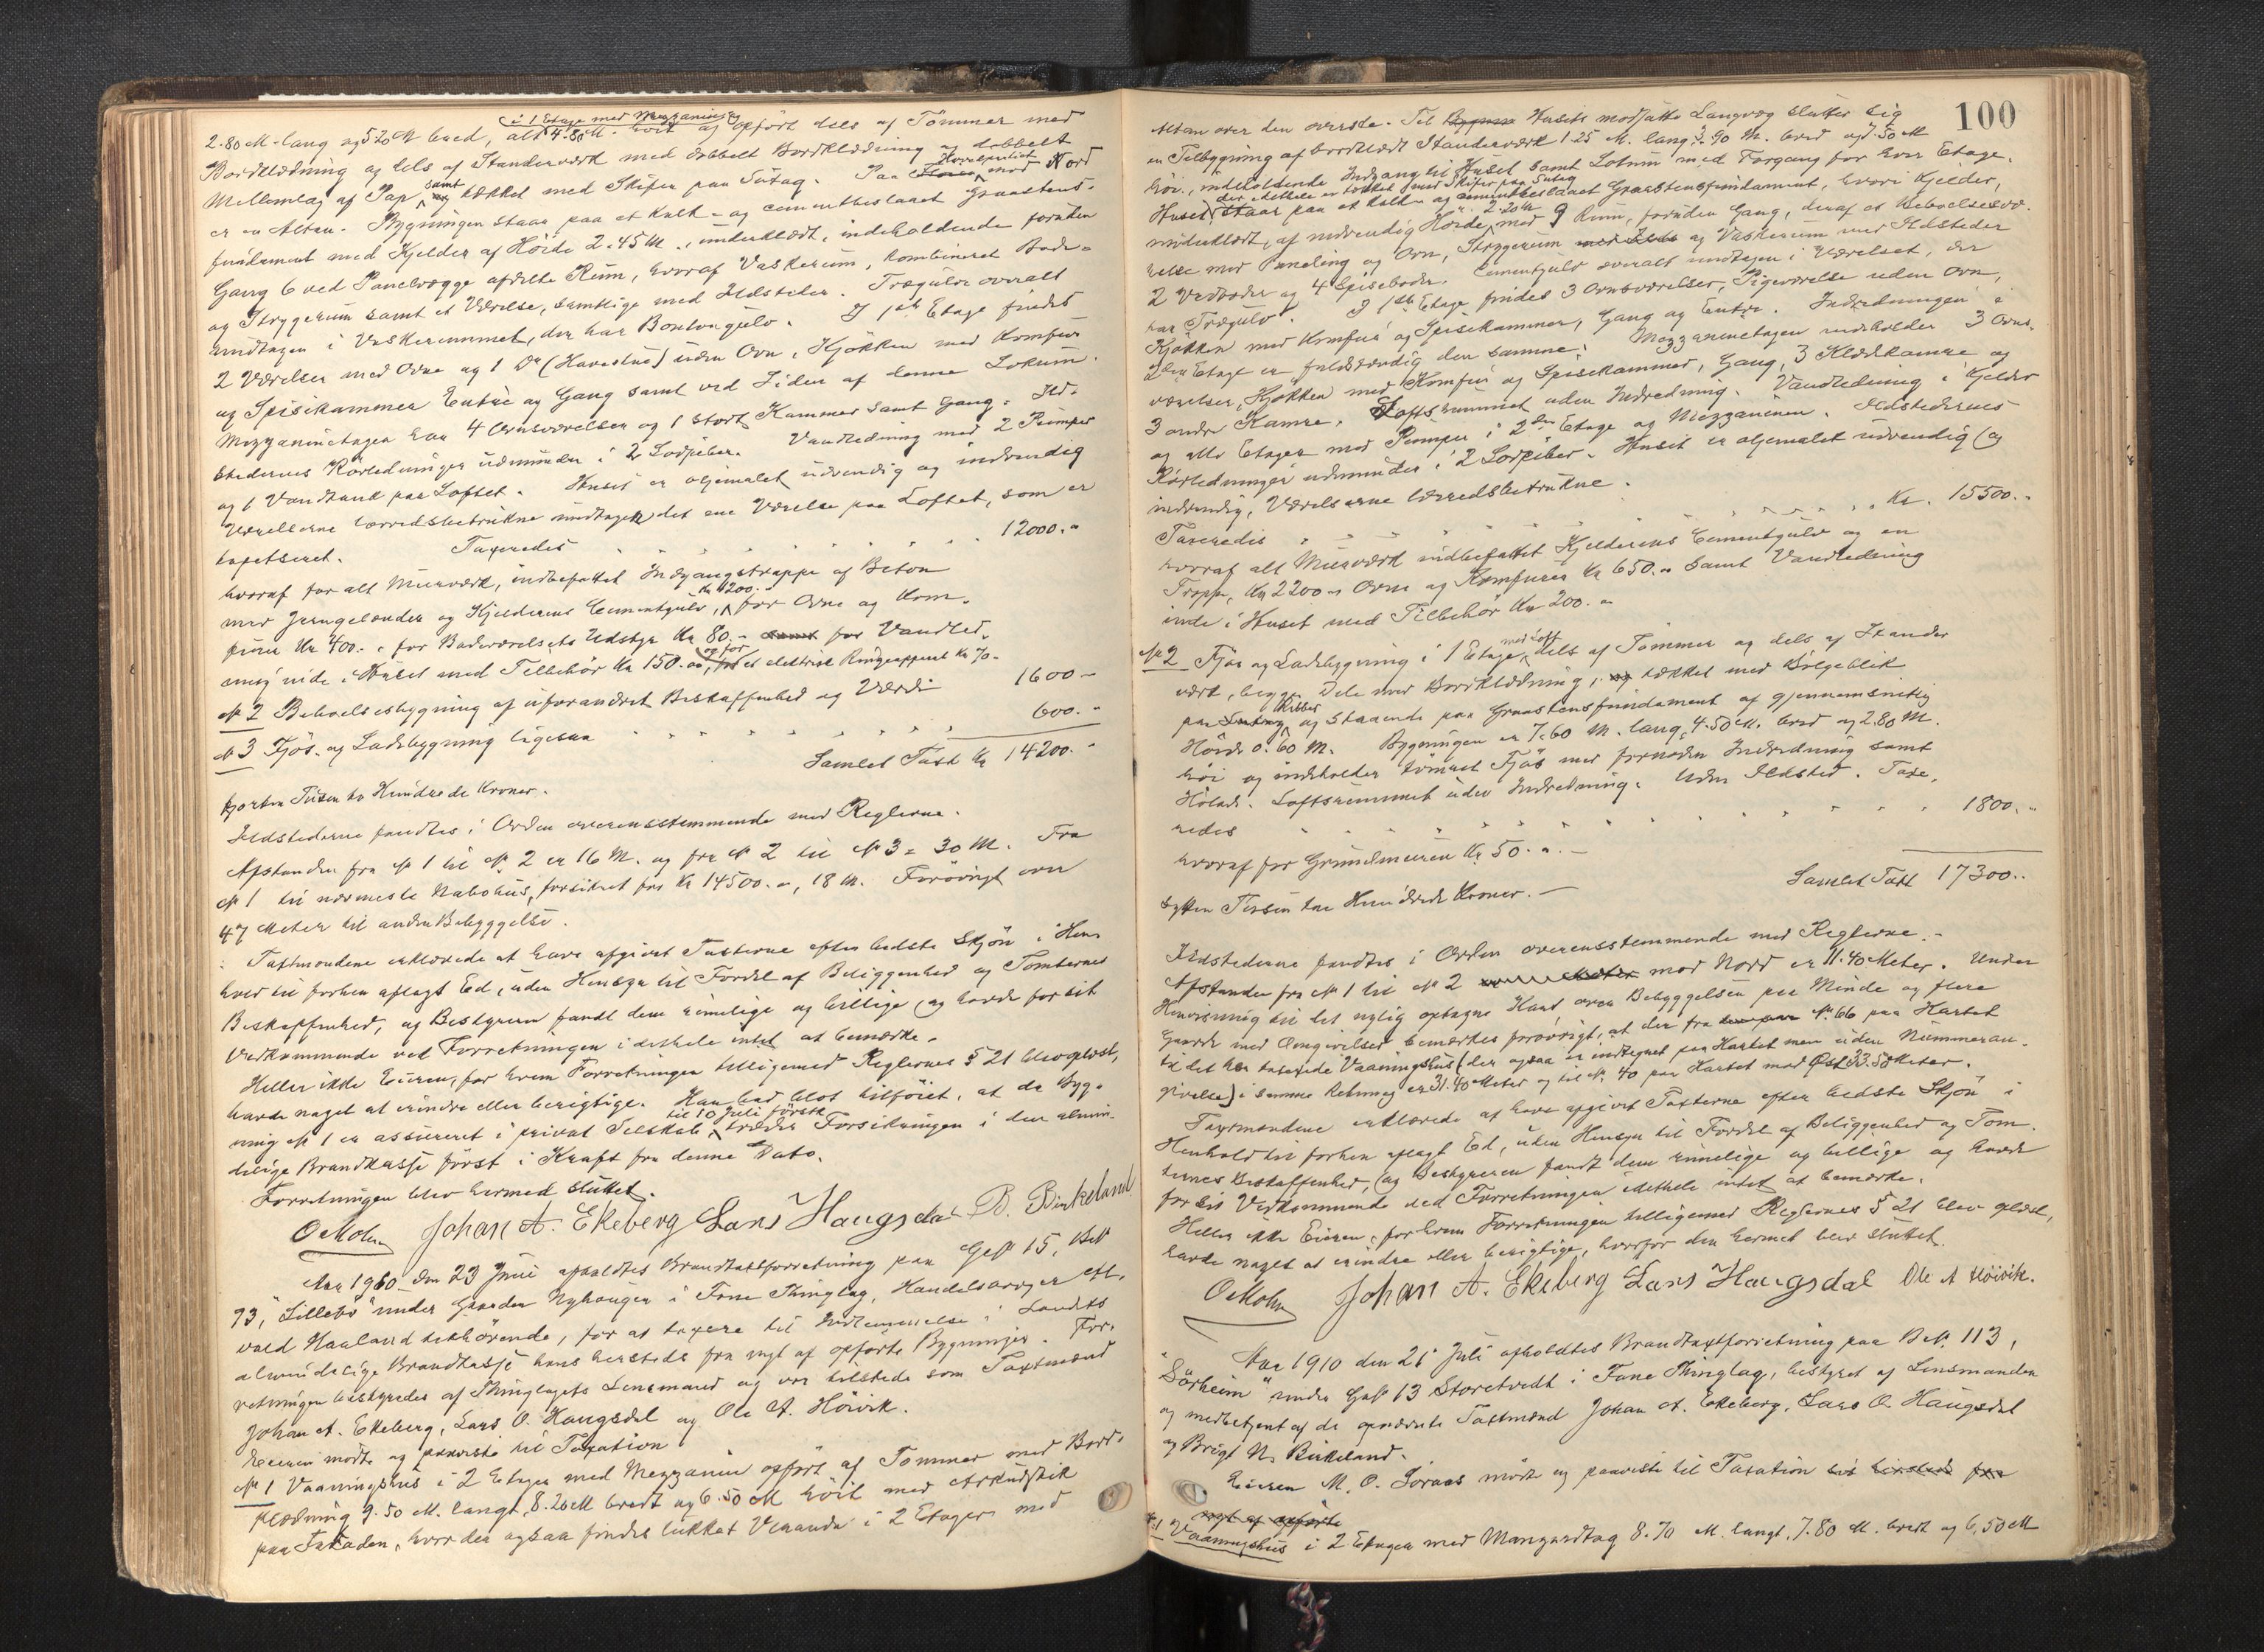 i 1 Etage med Mezzanin
2.80 M. lang og 5.20 M bred, alt 4.80 M. höit og opfört dels af Tömmer med
Bordklædning og dels af Standerværk med dobbelt Bordklædning og dobbelt
Mellemlag af Pap samt tækket med Skifer paa Sutag. Paa Hovedpartiet mod Nord
er en Altan. Bygningen staar paa et kalk- og cementbeslaaet Graastens-
fundament med Kjelder af Höide 2.45 M., underklædt, indeholdende foruden
Gang 6 ved Panelvægge afdelte Rum, hvoraf Vaskerum, kombineret Bade-
og Strygerum samt et Værelse, samtlige med Ildsteder. Trægulve overalt
undtagen i Vaskerummet, der har Betongulv. I 1ste Etage findes
2 Værelser med Ovne og 1 Do (Havestue) uden Ovn, Kjökken med Komfur
og Spisekammer Entre og Gang samt ved Siden af denne Lokum.
Mezzaninetagen har 4 Ovnsværelser og 1 stort Kammer samt Gang. Ild-
stedernes Rörledninger udmunder i 2 Lodpiber. Vandledning med 2 Pumper
og 1 Vandtank paa Loftet. Huset er oljemalet udvendig og indvendig
Værelserne lærredsbetrukne undtagen det ene Værelse paa Loftet, som er
tapetseret. Taxeredes 12000.-
hvoraf for alt Murværk, indbefattet Indgangstrappe af Beton
med Jerngelænder og Kjelderens Cementgulv, Kr 1200.- for Ovne og Kom-
furer Kr 400.-, for Badeværelsets Udstyr Kr 80.- samt for Vandled-
ning inde i Huset med Tilbehör Kr 150.-, og for et elektrisk Ringeapparat Kr 70-
No 2 Beboelsesbygning af uforandret Beskaffenhed og Værdi 1600 -
No 3 Fjös- og Ladebygning ligesaa 600.-
Samlet Taxt Kr 14200.-
fjorten Tusen to Hundrede Kroner.
Ildstederne fandtes i Orden overensstemmende med Reglerne.
Afstanden fra No 1 til No 2 er 16 M. og fra No 2 til No 3 = 30 M. Fra
No 1 til nærmeste Nabohus, forsikret for Kr 14500.-, 18 M. Forövrigt over
47 Meter til anden Bebyggelse.
Taxtmændene erklærede at have afgivet Taxterne efter bedste Skjön i Hen-
hold til forhen aflagt Ed, uden Hensyn til Fordel af Beliggenhed og Tomternes
Beskaffenhed, og Bestyreren fandt dem rimelige og billige og havde for sit
Vedkommende ved Forretningen idethele intet at bemærke.
Heller ikke Eieren, for hvem Forretningen tilligemed Reglernes § 21 blev oplæst,
havde noget at erindre eller berigtige. Han bad blot tilföiet, at da Byg-
ning No 1 er assureret i privat Selskab til 10 Juli förstk. træder Forsikringen i den almin-
delige Brandkasse först i Kraft fra denne Dato.
Forretningen blev hermed sluttet.
O Mohn Johan A. Ekeberg Lars Haugsdal B. Birkeland
Aar 1910 den 23 Juni afholdtes Brandtaxtforretning paa GNo 15, BNo
93, "Lillebö" under Gaarden Nyhaugen i Fane Thinglag, Handelsborger Et-
vald Haaland tilhörende, for at taxere til Indlemmelse i Landets
almindelige Brandkasse hans hersteds fra nyt af opförte Bygninger. For-
retningen bestyredes af Thinglagets Lensmand og var tilstede som Taxtmænd
Johan A. Ekeberg, Lars O. Haugsdal og Ole A. Höivik.
Eieren mödte og paaviste til Taxation
No 1 Vaaningshus i 2 Etager med Mezzanin opfört af Tömmer med Bord-
klædning 9.50 M. langt, 8.20 M bredt og 6.50 M höit med Arkudstik
paa Facaden, hvor der ogsaa findes lukket Veranda i 2 Etager med
100
Altan over den överste. Til Husets modsatte Langvæg slutter sig
en Tilbygning af bordklædt Standerværk 1.25 M. lang, 3.90 M. bred og 7.50 M
höi, indeholdende Indgang til Huset samt Lokum med Forgang for hver Etage.
der idethele er tækket med Skifer paa Sutag
Huset staar paa et kalk- og cementbeslaaet Graastensfundament, hvori Kjelder,
underklædt, af indvendig Höide 2.20 M med 9 Rum, foruden Gang, deraf et Beboelsesvæ-
relse med Paneling og Ovn, Strygerum og Vaskerum med Ildsteder
2 Vedboder og 4 Spiseboder. Cementgulv overalt undtagen i Værelset, der
har Trægulv. I 1ste Etage findes 3 Ovnsværelser, Pigeværelse uden Ovn,
Kjökken med Komfur og Spisekammer, Gang og Entre. Indredningen i
2den Etage er fuldstændig den samme. Mezzaninetagen indeholder 3 Ovns-
værelser, Kjökken med Komfur og Spisekammer, Gang, 3 Klædekamre og
3 andre Kamre. Loftsrummet uden Indredning. Vandledning i Kjelder
og alle Etager med Pumper i 2den Etage og Mezzaninen. Ildstedernes
Rörledninger udmunder i 2 Lodpiber. Huset er oljemalet udvendig og
indvendig, Værelserne lærredsbetrukne.
Taxeredes Kr. 15500.-
hvoraf alt Murværk indbefattet Kjelderens Cementgulv og en
Trappe, Kr 2200.- Ovne og Komfurer Kr 650.- samt Vandledning
inde i Huset med Tilbehör Kr 200.-
No 2 Fjös og Ladebygning i 1 Etage med Loft dels af Tömmer og dels af Stander
vært, begge Dele med Bordklædning, tækket med Bölgeblik
paa Ribber og staaende paa Graastensfundament af gjennemsnitlig
Höide 0.60 M. Bygningen er 7.60 M. lang, 4.50 M. bred og 2.80 M.
höi og indeholder tömret Fjös med fornöden Indredning samt
Hölade. Loftsrummet uden Indredning. Uden Ildsted. Taxe-
redes 1800.-
hvoraf for Grundmuren Kr 50.-
Samlet Taxt 17300..
sytten Tusen tre Hundrede Kroner.
Ildstederne fandtes i Orden overensstemmende med Reglerne.-
Afstanden fra No 1 til No 2 mod Nord er 11.40 Meter. Under
Henvisning til det nylig optagne Kart over Bebyggelsen paa Minde og flere
Gaarde med Omgivelser bemærkes forövrigt, at der fra No 66 paa Kartet
til det her taxerede Vaaningshus (der ogsaa er indtegnet paa Kartet men uden Nummeran-
givelse) i samme Retning er 31.40 Meter og til No 40 paa Kartet mod Öst 33.50 Meter.
Taxtmændene erklærede at have afgivet Taxterne efter bedste Skjön i
Henhold til forhen aflagt Ed, uden Hensyn til Fordel af Beliggenhed og Tom-
ternes Beskaffenhed, og Bestyreren fandt dem rimelige og billige og havde
for sit Vedkommende ved Forretningen idethele intet at bemærke.
Heller ikke Eieren, for hvem Forretningen tilligemed Reglernes § 21 blev oplæst,
havde noget at erindre eller berigtige, hvorfor den hermed blev sluttet.
O Mohn Johan A. Ekeberg Lars Haugsdal Ole A Höivik.
Aar 1910 den 21 Juli afholdtes Brandtaxtforretning paa BNo 113,
"Sörheim" under GNo 13 Storetvedt i Fane Thinglag, bestyret af Lensmanden
og medbetjent af de opnævnte Taxtmænd Johan A. Ekeberg, Lars O. Haugsdal
og Brigt N. Birkeland.
Eieren M. O. Soraas mödte og paaviste til Taxation hös hersteds fra
nyt af opförte
No 1 Vaaningshus i 2 Etager med Mansardtag 8.70 M. langt, 7.80 M. bredt og 6.50 M